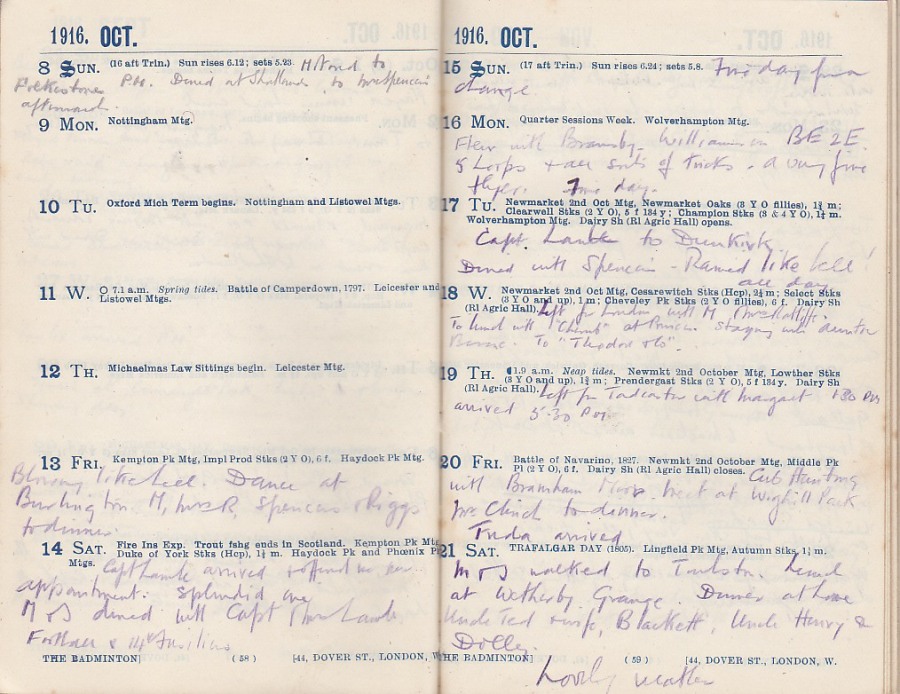 1916. OCT.
8 SUN. (16 aft Trin.) Sun rises 6.12; sets 5.23. Motored to
Folkestone P.M. Dined at Shorncliffe, to Mrs Spencer's
afterwards.
9 MON. Nottingham Mtg.
10 TU. Oxford Mich Term begins. Nottingham and Listowel Mtgs.
11 W. O 7.1 a.m. Spring tides. Battle of Camperdown, 1797. Leicester and
Listowel Mtgs.
12 TH. Michaelmas Law Sittings begin. Leicester Mtg.
13 FRI. Kempton Pk Mtg, Impl Prod Stks (2 Y O), 6 f. Haydock Pk Mtg.
Blowing like hell. Dance at
Burlington. M, Mrs R, Spencer & Riggs
to dinner.
14 SAT. Fire Ins Exp. Trout fshg ends in Scotland. Kempton Pk Mtg,
Duke of York Stks (Hcp), 1¼ m. Haydock Pk and Phœnix Pk
Mtgs.
Capt Lamb arrived & offered me new
appointment. Splendid one
M & J dined with Capt & Mrs Lamb
THE BADMINTON] (58) [44, DOVER ST., LONDON, W.
1916. OCT.
15 SUN. (17 aft Trin.) Sun rises 6.24; sets 5.8. Fine day for a
change.
16 MON. Quarter Sessions Week. Wolverhampton Mtg.
Flew with Bransby-Williams in BE 2E.
5 Loops & all sorts of tricks. A very fine
flyer. Fine day.
17 TU. Newmarket 2nd Oct Mtg, Newmarket Oaks (3 Y O fillies), 1¾ m;
Clearwell Stks (2 Y O), 5 f 134 y; Champion Stks (3 & 4 Y O), 1¼ m.
Wolverhampton Mtg. Dairy Sh (Rl Agric Hall) opens.
Capt. Lamb to Dunkirk.
Dined with Spencer - Rained like hell!
all day
18 W. Newmarket 2nd Oct Mtg, Cesarewitch Stks (Hcp), 2¼ m; Select Stks
(3 Y O and up), 1 m; Cheveley Pk Stks (2 Y O fillies), 6 f. Dairy Sh
(Rl Agric Hall). Left for London with M, Mrs Ratliffe.
To lunch with "Cherub" at Princes. Staying with
To "Theodore & Co".
19 TH. 1.9 a.m. Neap tides. Newmkt 2nd October Mtg, Lowther Stks
(3 Y O and up), 1¾ m; Prendergast Stks (2 Y O), 5 f 134 y. Dairy Sh
(Rl Agric Hall). Left for Tadcaster with Margaret 1.30 PM
arrived 5.30 PM.
20 FRI. Battle of Navarino, 1827. Newmkt 2nd October Mtg, Middle Pk
Pl (2 Y O), 6 f. Dairy Sh (Rl Agric Hall) closes. Cub Hunting
with Bramham Moor. Meet at Wighill Park
to dinner.
arrived
21 SAT. TRAFALGAR DAY (1805). Lingfield Pk Mtg, Autumn Stks, 1¼ m.
M & J walked to
at Wetherby Grange. Dinner at home
Uncle Ted & wife, Blackett, Uncle Henry &
Dolly.
THE BADMINTON] (59) [44, DOVER ST., LONDON, W.
Lovely weather